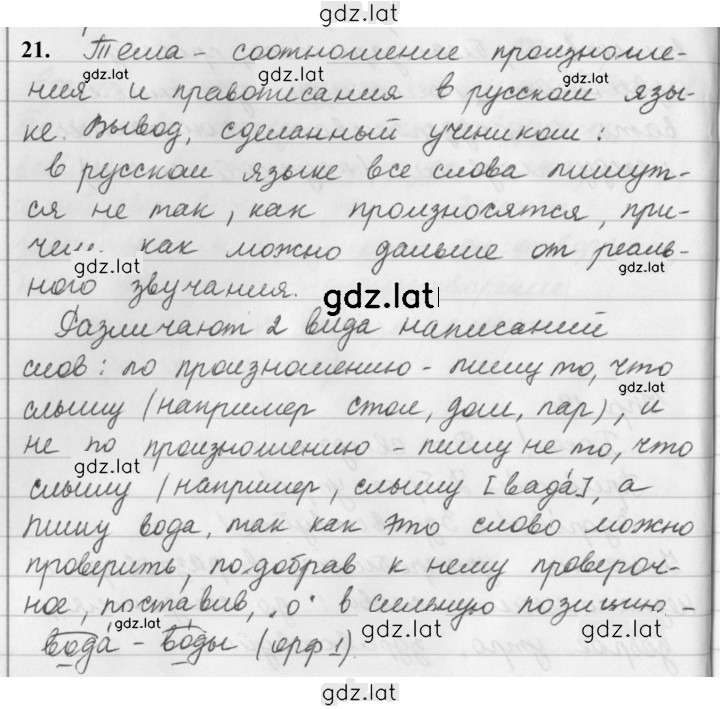 gdz.lat
21. Тема – соотношение произноше-
gdz.lat gdz.lat
ния и правописания в русском язы-
ке. Вывод, сделанный учеником:
в русском языке все слова пишут-
ся не так, как произносятся, при-
чем как можно дальше от реаль-
gdz.lat gdz.lat
ного звучания.
gdz.lat
Различают 2 вида написаний
слов: по произношению – пишу то, что
gdz.lat
слышу (например стол, дом, пар), и
не по произношению – пишу не то, что
gdz.lat
слышу (например, слышу [вада́], а
пишу вода, так как это слово можно
проверить, подобрав к нему провероч-
ное, поставив „о“ в сильную позицию –
gdz.lat gdz.lat gdz.lat
вода́ – во́ды (орф 1).
gdz.lat